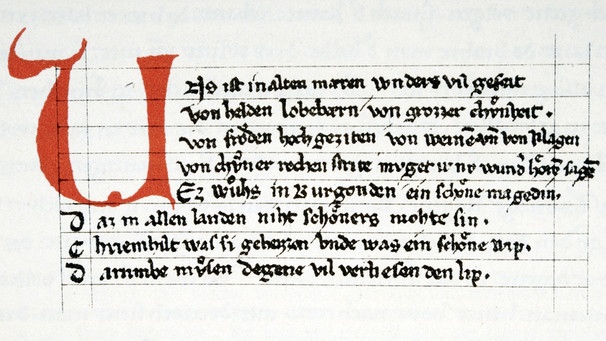 Uns ist in alten mæren wnders vil geseit
von helden lobebærn von grozzer chvͦnheit.
von froͤden hochgeziten von weinē vn̄ von klagen
von chvͦner rechen strite mvget ir nv wund̾ hoͤrē sagē
Ez wͦhs in Burgonden ein schoͤne magedin.
Daz in allen landen niht schoͤners mohte sin.
Chriemhilt was si geheizzen vnde was ein schoͤne wip.
Darumbe mvͦsen degene vil verliesen den lip.